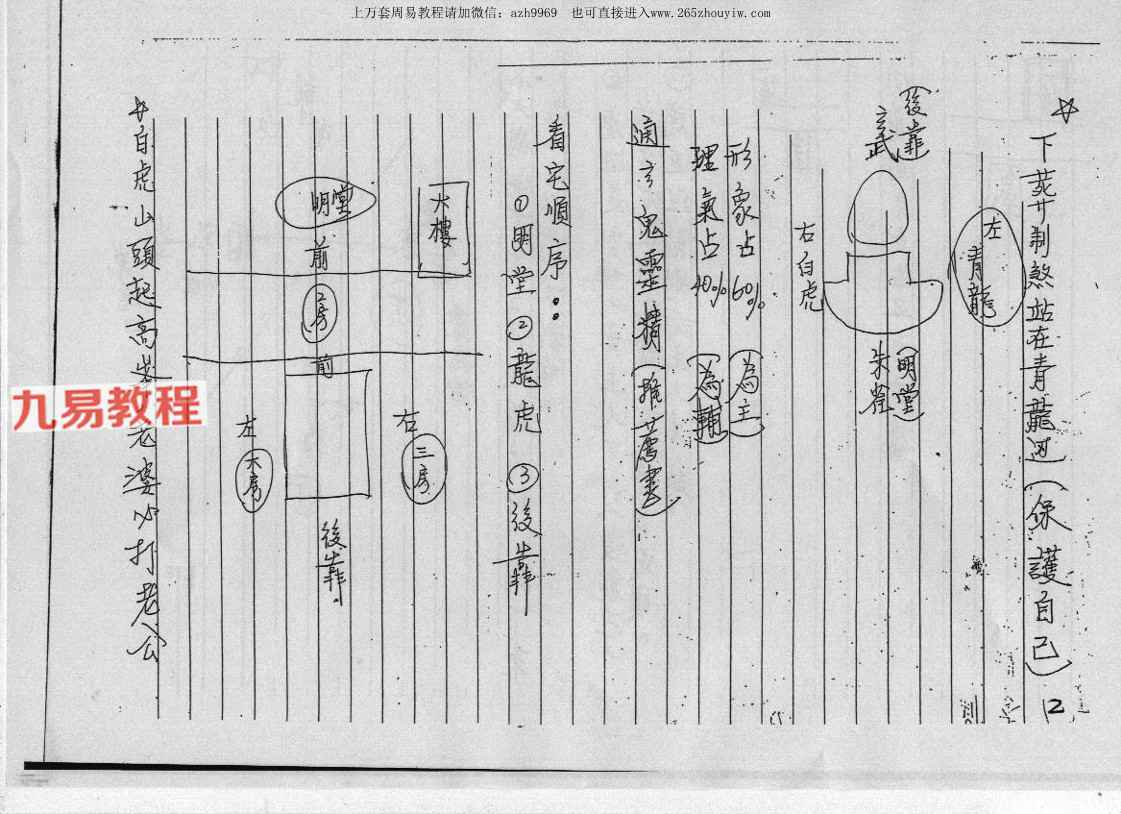 上万套周易教程请加微信：azh9969 也可直接进入www.265zhouyiw.com
☆下葬 制煞站在青龍边（保護自己）
12
左青龍
（後靠）
玄武
（明堂）
朱雀
右白虎
形象占60%（為主）
理氣占40%（為輔）
通玄鬼靈精（推薦書）
看宅順序：
①明堂 ②龍虎 ③後靠
大樓
明堂
前
二房
前
右
三房
左
大房
後靠
☆白虎山頭起高 老婆 打老公
九易教程